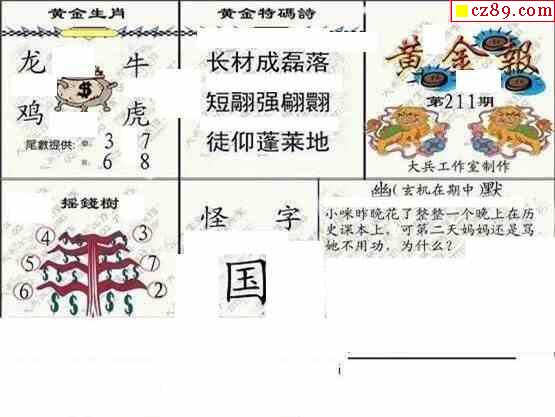 cz89.com
黄金生肖
龙 牛
鸡 虎
尾數提供: 3 7
6 8
黄金特碼詩
长材成磊落
短翮强翩翾
徒仰蓬莱地
黄金報
第211期
大兵工作室制作
摇錢樹
4 3
5 7
6 2
怪 字
国
幽(玄机在期中 默
小咪昨晚花了整整一个晚上在历
史课本上，可第二天妈妈还是骂
她不用功，为什么？